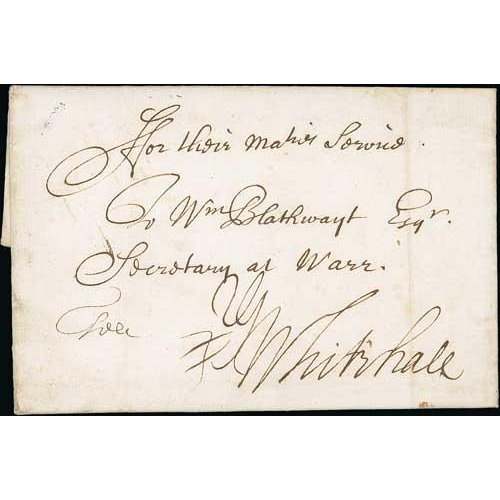 For their Ma^ties Service
To Wm Blathwayt Esqr.
Secretary at Warr.
Whitehall